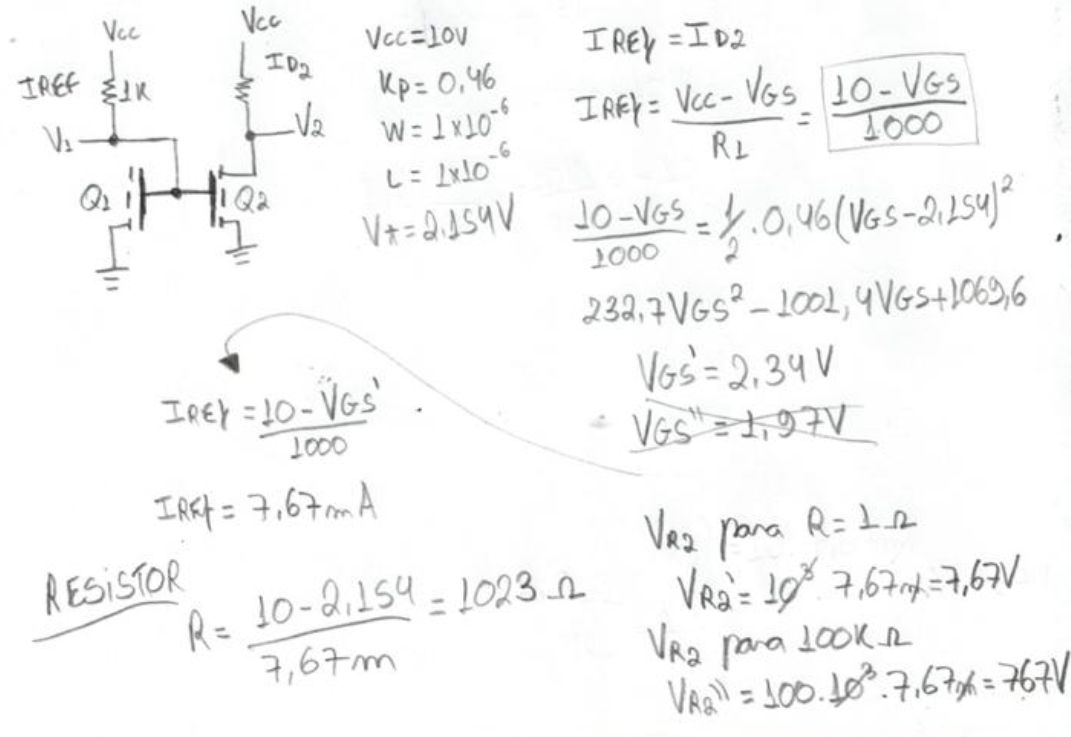 Vcc
Vcc
IREF
1K
ID2
V1
V2
Q1
Q2
Vcc=10V
Kp= 0,46
W= 1x10^-6
L= 1x10^-6
Vt=2.154V
IREf = ID2
IREf = Vcc - VGS / R1 = 10 - VGS / 1000
10-VGS / 1000 = 1/2 . 0,46 (VGS-2,154)^2
232,7VGS^2 - 1001,4VGS+1069,6
VGS' = 2,34 V
VGS'' = 1,97V
IREf = 10 - VGS' / 1000
IREf = 7,67mA
RESISTOR
R = 10-2,154 / 7,67m = 1023 Ω
VR2 para R= 1 Ω
VR2' = 10^3 7,67m=7,67V
VR2 para 100K Ω
VR2'' = 100.10^3.7,67m = 767V